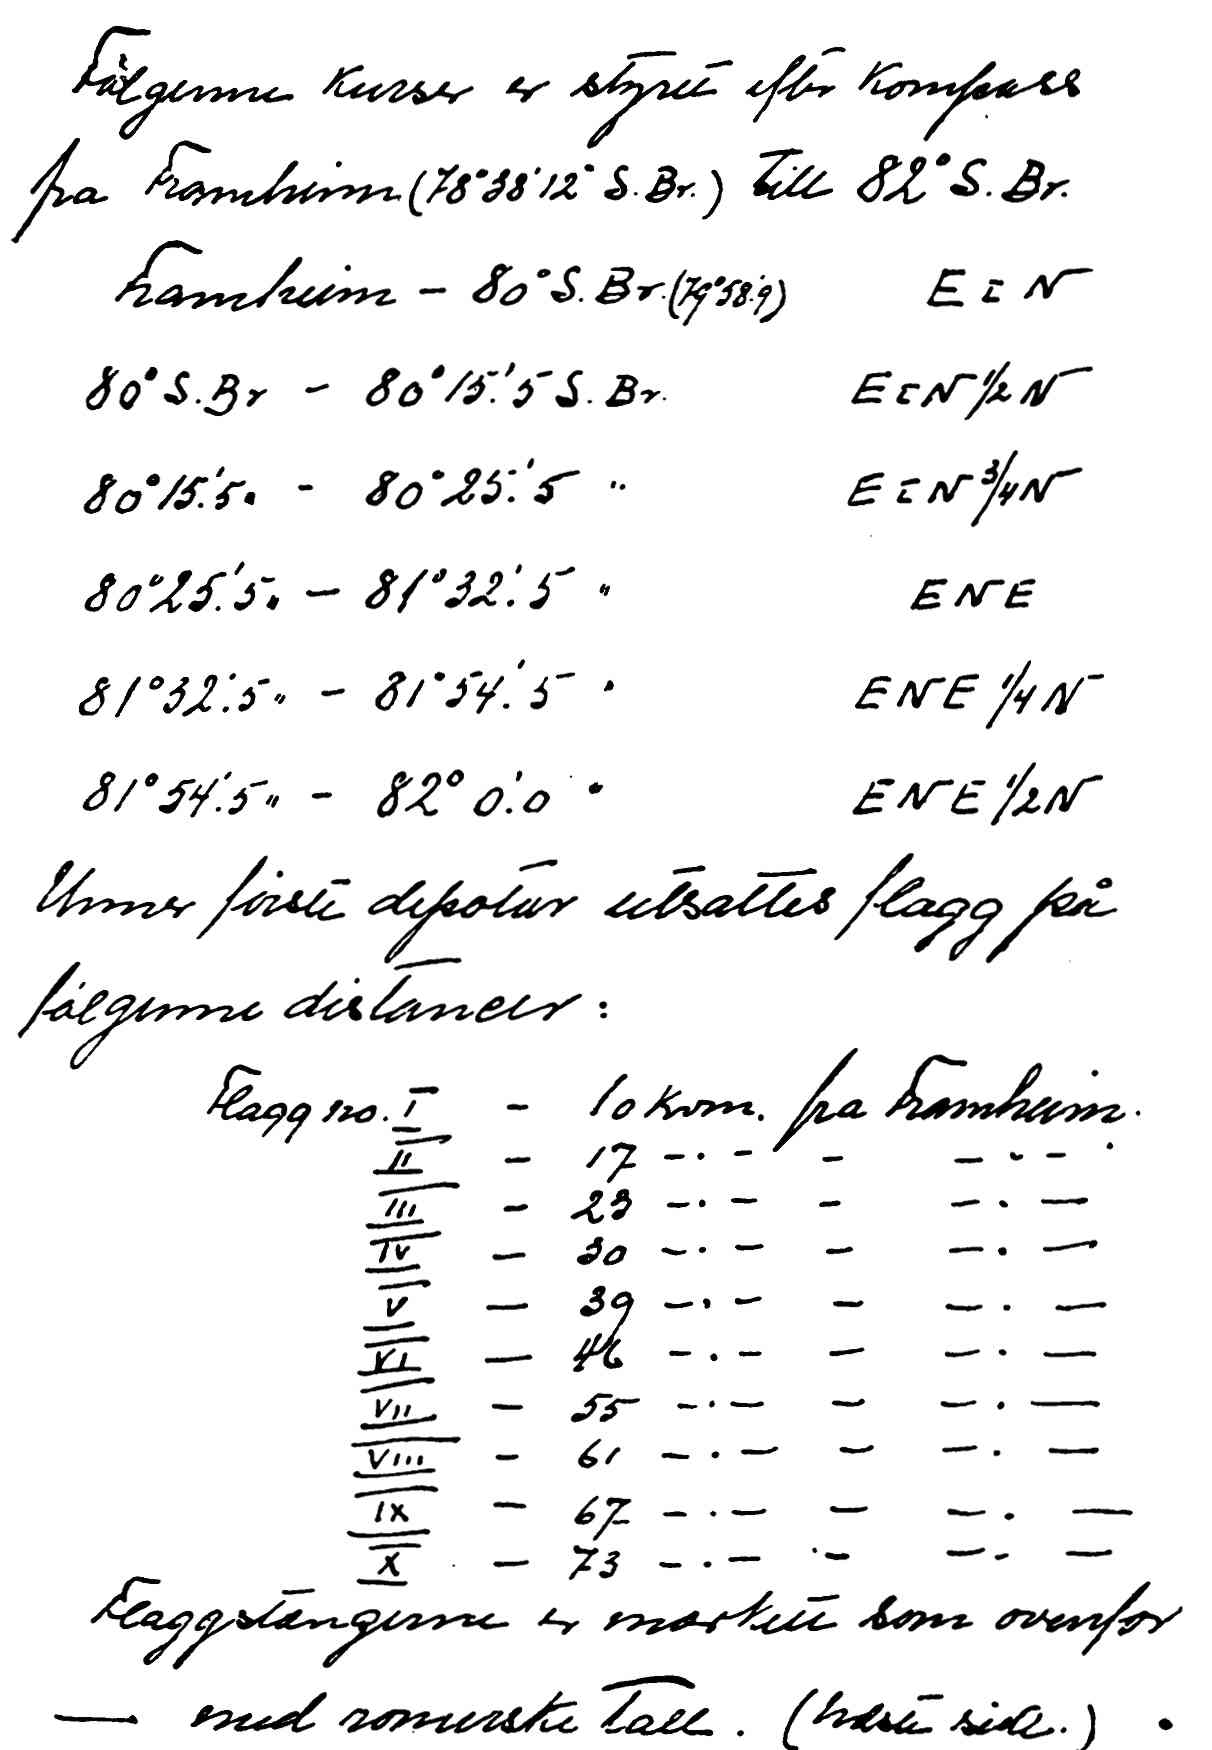 Følgenne kurser er styret efter kompass
fra Framheim (78°38'12" S. Br.) till 82° S. Br.
Framheim - 80° S. Br. (79°58'.9) E t N
80° S. Br - 80°15.'5 S. Br. E t N 1/2 N
80°15.'5 " - 80°25.'5 " E t N 3/4 N
80°25.'5 " - 81°32.'5 " ENE
81°32.'5 " - 81°54.'5 " ENE 1/4 N
81°54.'5 " - 82° 0.'0 " ENE 1/2 N
Unner første depotur utsattes flagg på
følgenne distancer:
Flagg no. I - 10 kvm. fra Framheim.
II - 17 -.- - -.-
III - 23 -.- - -.-
IV - 30 -.- - -.-
V - 39 -.- - -.-
VI - 46 -.- - -.-
VII - 55 -.- - -.-
VIII - 61 -.- - -.-
IX - 67 -.- - -.-
X - 73 -.- - -.-
Flaggstængerne er mærkett som ovenfor
— med romerske tall. (Næste side.)